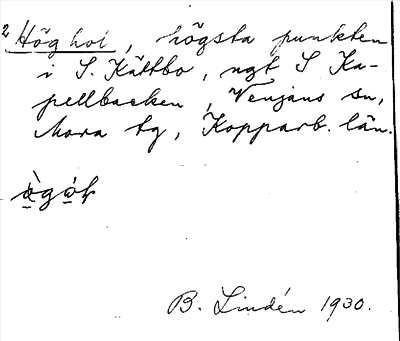 2 Höghoi, högsta punkten
i S. Kättbo, ngt S Ka-
pellbacken, Venjans sn,
Mora tg, Kopparb. län.
B. Lindén 1930.